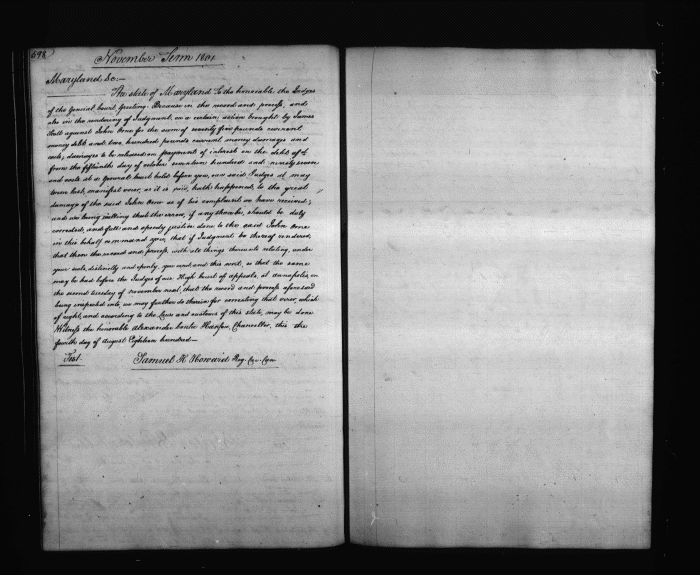 598
November Term 1801
Maryland Sc:—
The state of Maryland To the honorable the Judges
of the General Court, Greeting. Because in the record and process, and
also in the rendering of Judgment, on a certain action brought by James
against John Orne for the sum of seventy five pounds current
money debt and two hundred pounds current money damages and
costs; damages to be released on payment of interest on the debt
from the fifteenth day of october seventeen hundred and ninety seven
and costs at a General Court held before you, our said Judges at may
term last, manifest error, as it is said, hath happened, to the great
damage of the said John Orne as of his complaint we have received;
and we being willing that the error, if any there be, should be duly
corrected, and full and speedy justice done to the said John Orne
in this behalf command you, that if Judgment be thereof rendered,
that then the record and process with all things thereunto relating, under
your seals, distinctly and openly, you send, and this writ, so that the same
may be had before the Judges of our High Court of appeals, at annapolis, on
the second tuesday of november next, that the record and process aforesaid
being inspected into, we may further do therein for correcting that error, which
of right, and according to the Laws and customs of this state, may be done
Witness the honorable Alexander Contee Hanson, Chancellor, this the
fourth day of August Eighteen hundred—
Test.
Samuel H Howard Reg. Cur. Can